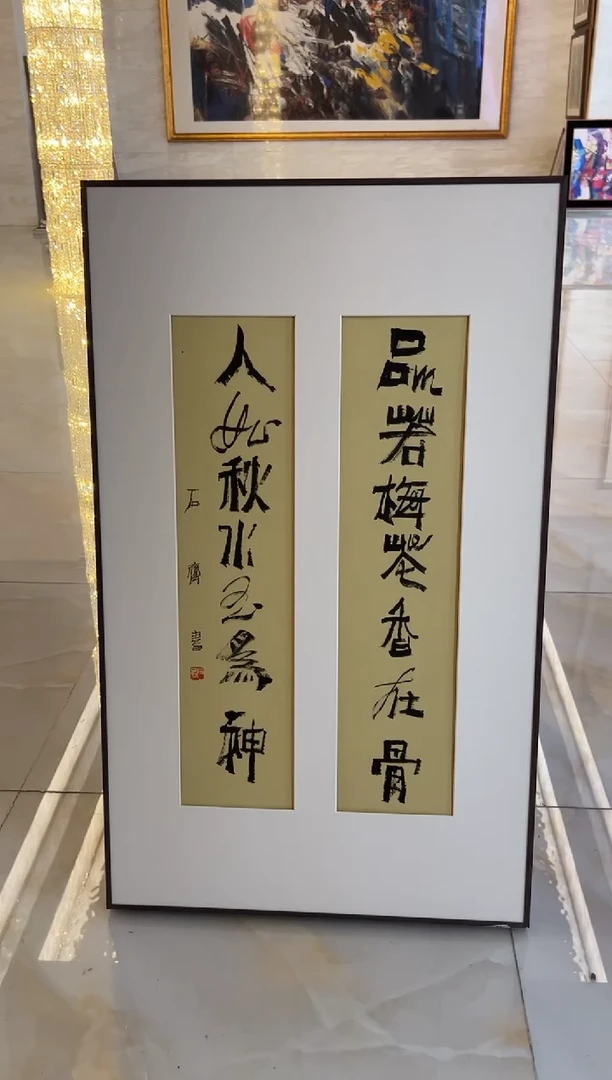 品若梅花香在骨
人如秋水玉為神
石齊書